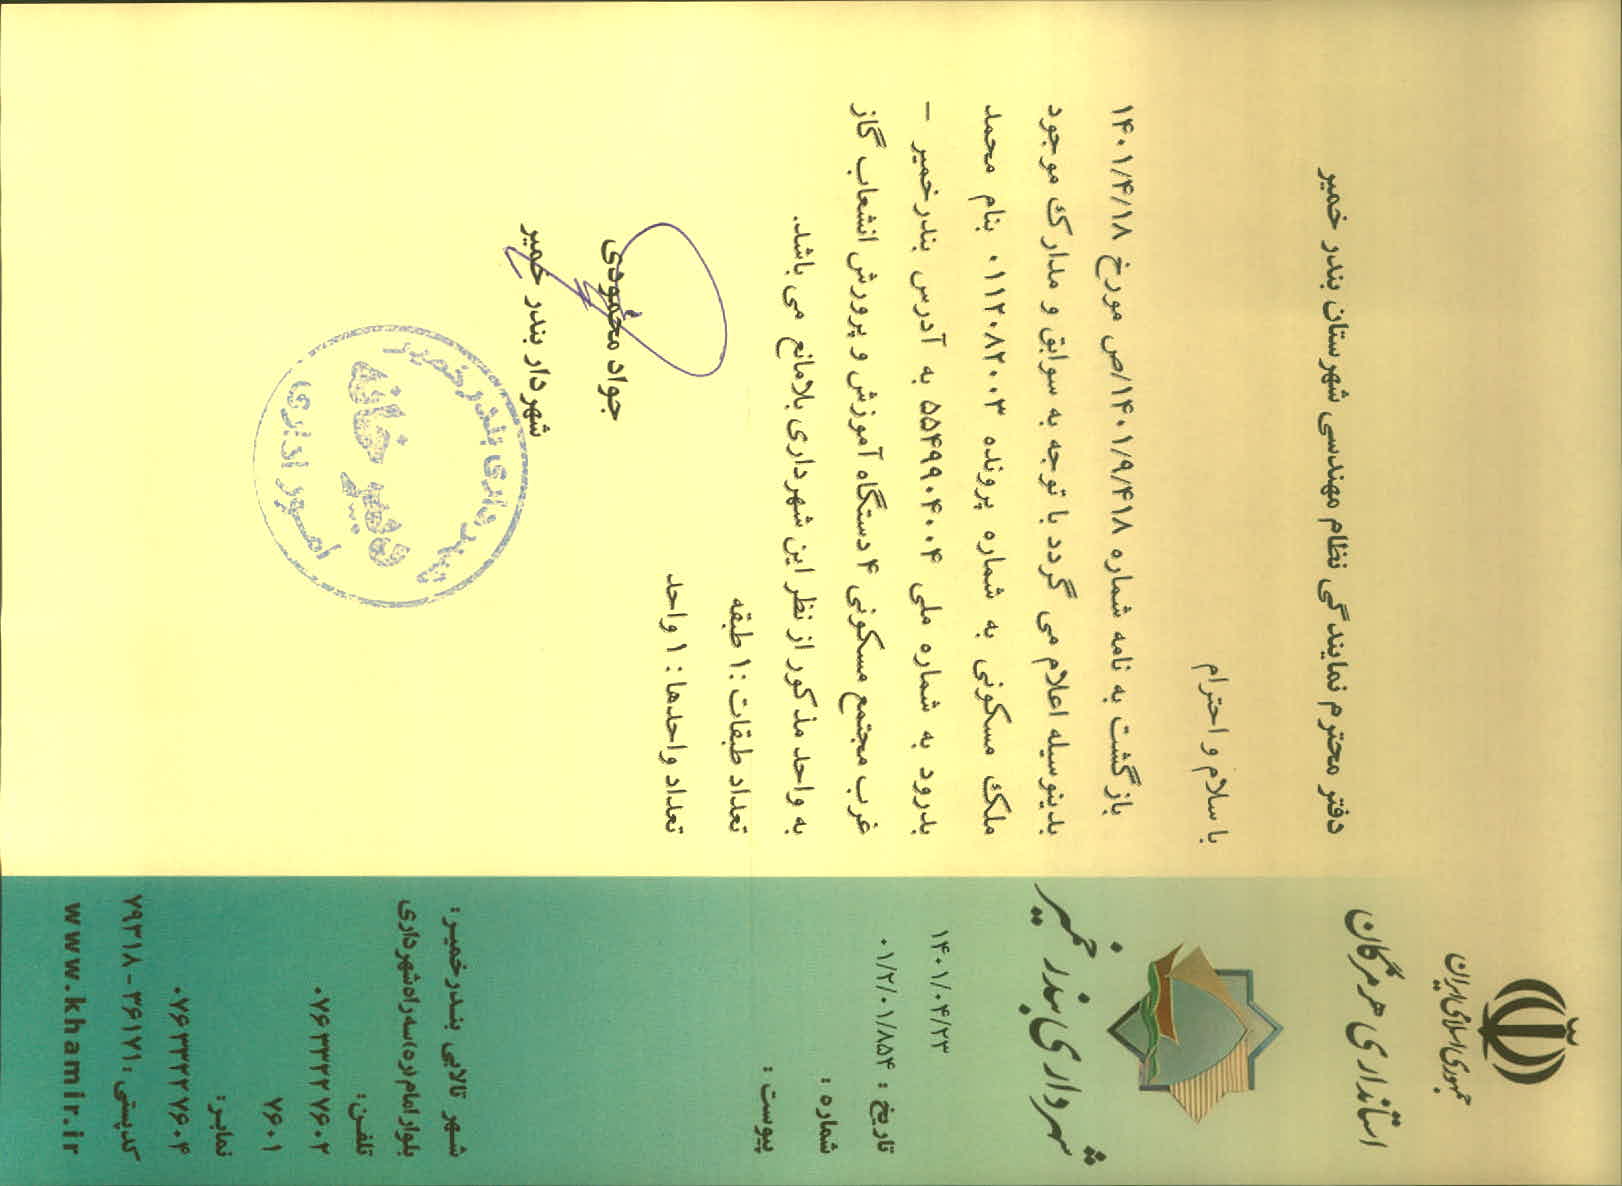 جمهوری اسلامی ایران
استانداری هرمزگان
شهرداری بندر خمیر
۱۴۰۱/۰۴/۲۳
تاریخ : ۰۱/۲/۰۱/۸۵۴
شماره :
پیوست :
دفتر محترم نمایندگی نظام مهندسی شهرستان بندر خمیر
با سلام و احترام
بازگشت به نامه شماره ۱۴۰۱/۹/۴۱۸/ص مورخ ۱۴۰۱/۴/۱۸
بدینوسیله اعلام می گردد با توجه به سوابق و مدارک موجود
ملک مسکونی به شماره پرونده ۰۱۱۲۰۸۲۰۰۳ بنام محمد
بدرود به شماره ملی ۵۵۴۹۹۰۴۰۰۴ به آدرس بندرخمیر –
غرب مجتمع مسکونی ۴ دستگاه آموزش و پرورش انشعاب گاز
به واحد مذکور از نظر این شهرداری بلامانع می باشد.
تعداد طبقات : ۱ طبقه
تعداد واحدها : ۱ واحد
جواد محمودی
شهردار بندر خمیر
شهرداری بندر خمیر
دبیر خانه
امور اداری
شهر تالابی بندرخمیر :
بلوار امام (ره) سه راه شهرداری
تلفن:
۰۷۶۳۳۲۲۷۶۰۲
۷۶۰۱
نمابر:
۰۷۶۳۳۲۲۷۶۰۴
کدپستی : ۳۶۱۷۱ - ۷۹۳۱۸
www.khamir.ir